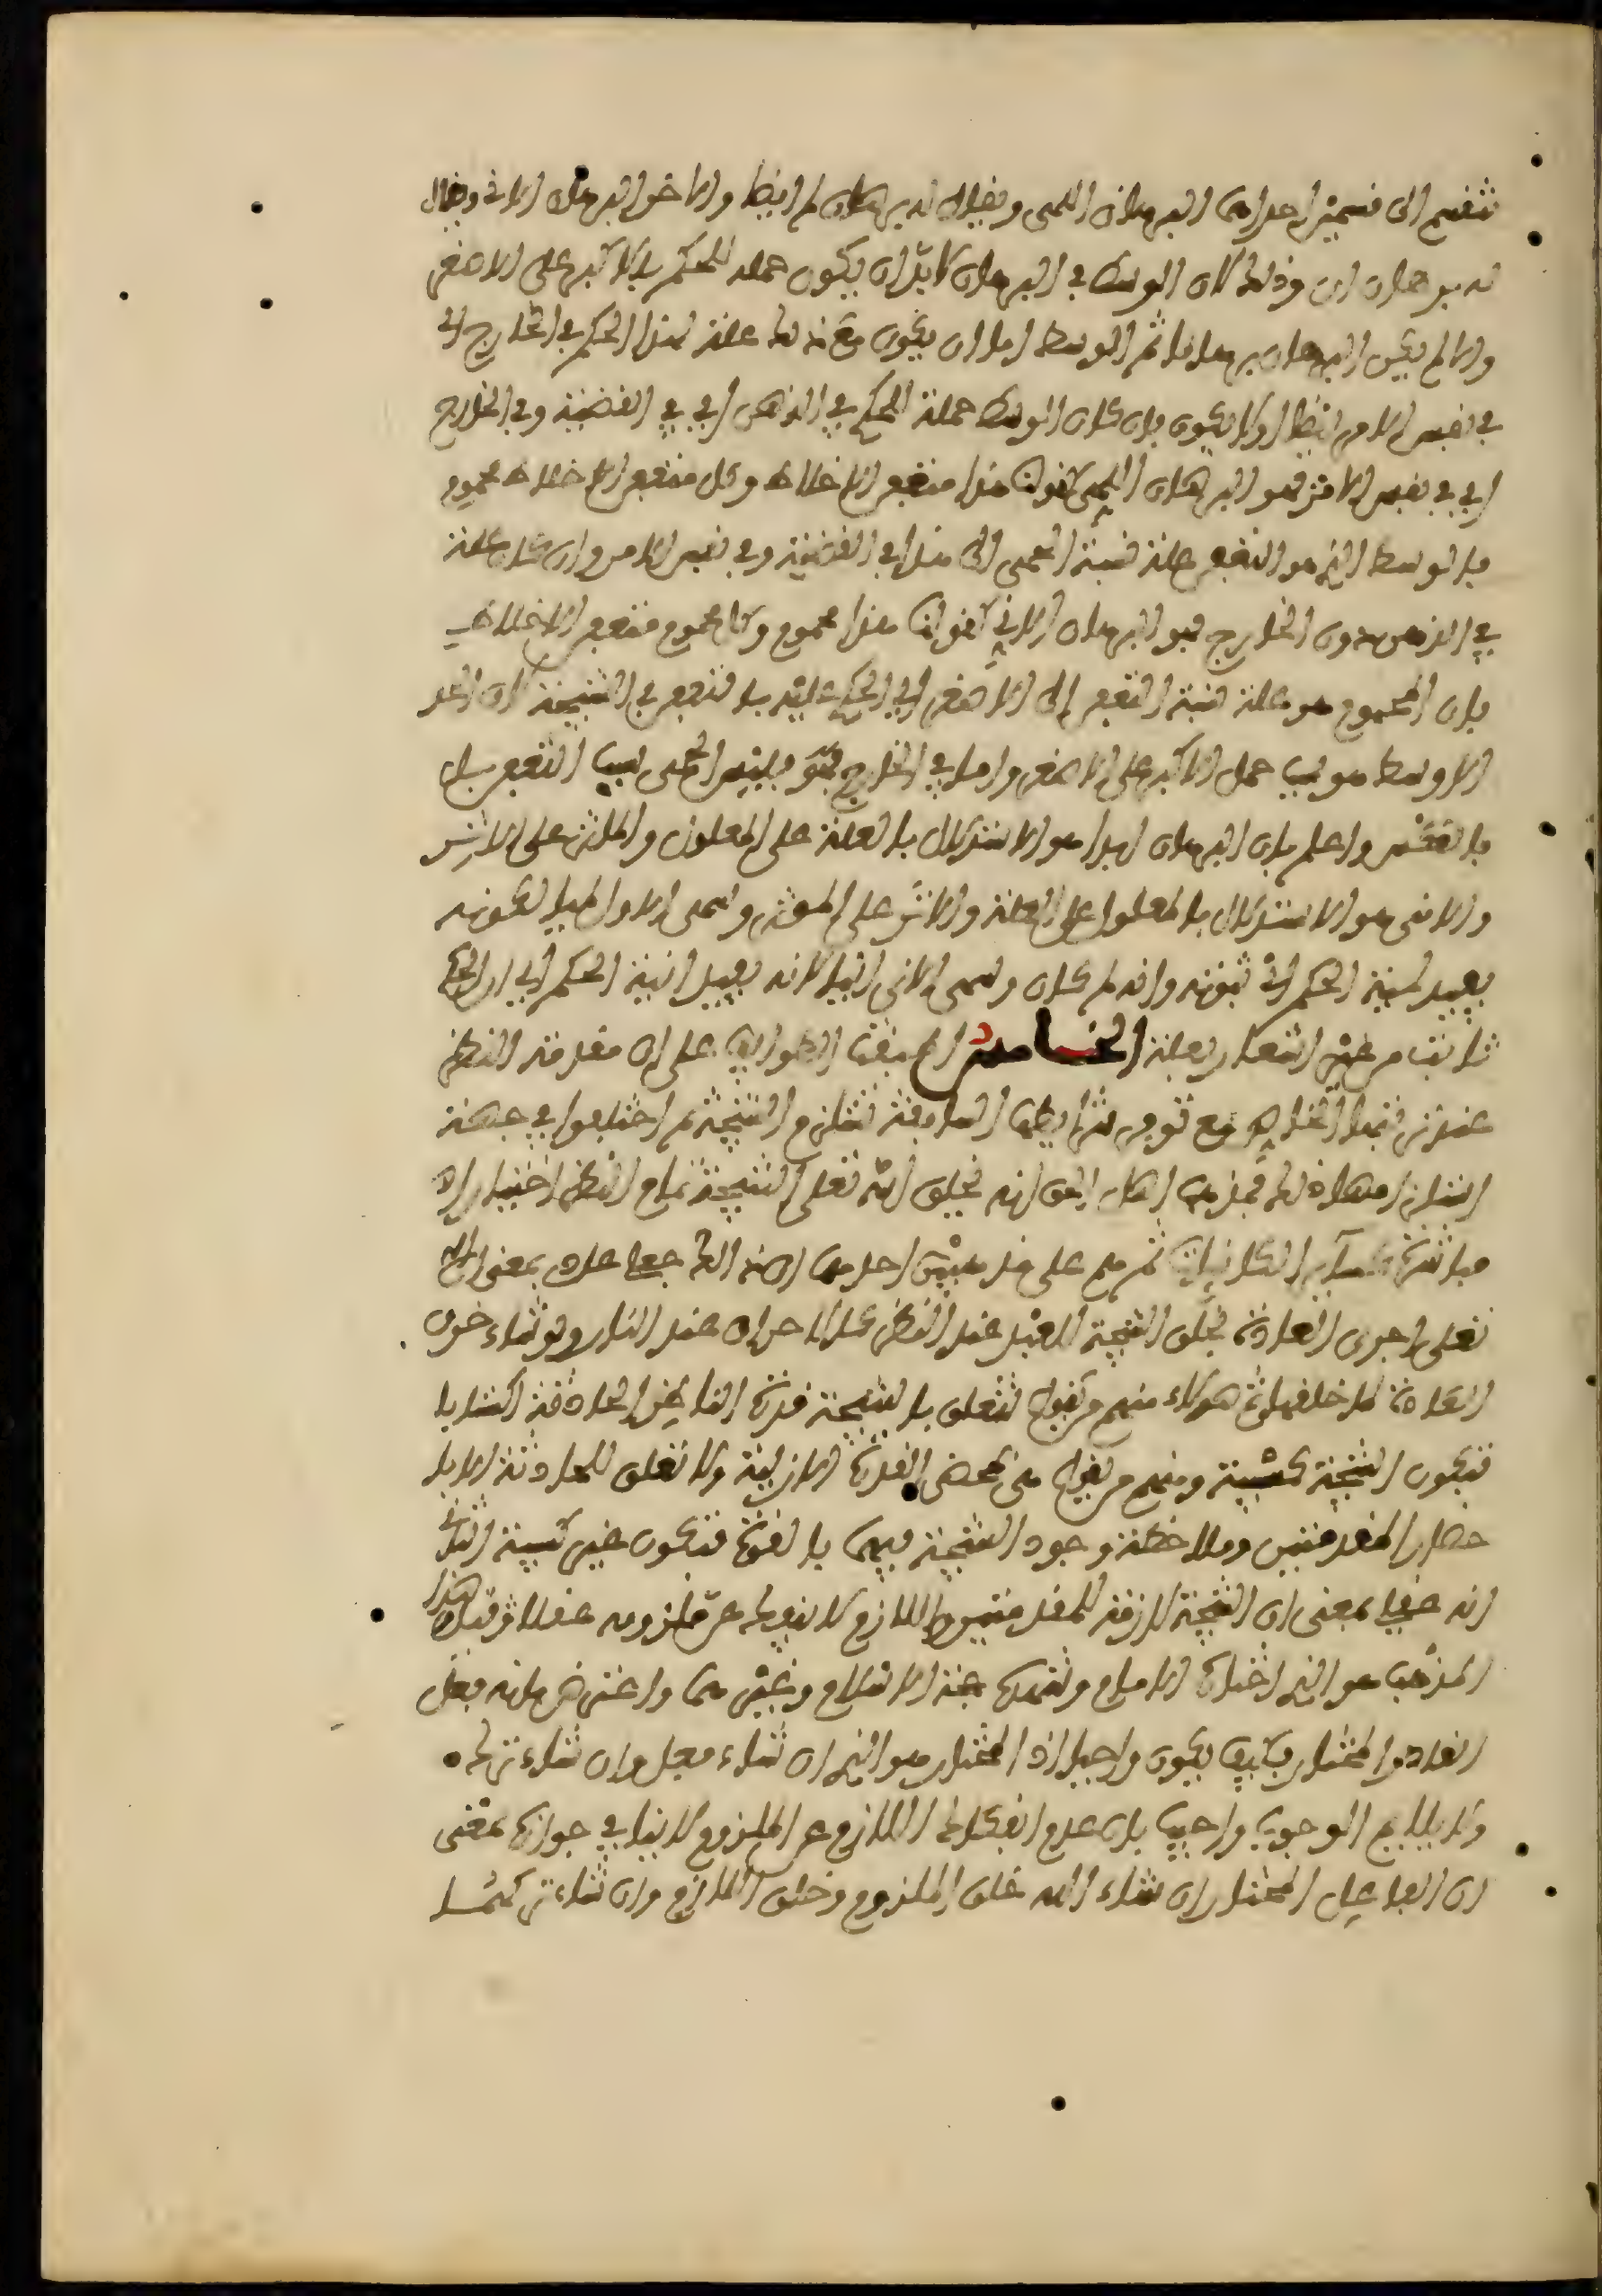 تنقسم الى قسمين احداهما البرهان اللمي ويقال له برهان لم ايضا والاخر البرهان الاني ويقال
له برهان ان وذلك لان الوسط في البرهان لا بد ان يكون علة للحكم بالاكبر على الاصغر
والا لم يكن البرهان برهانا ثم الوسط اما ان يكون مع ذلك علة لهذا الحكم في الخارج اي
في نفس الامر ايضا او لا يكون فان كان الوسط علة الحكم في الذهن اي في القضية وفي الخارج
اي في نفس الامر فهو البرهان اللمي كقولنا هذا متعفن الاخلاط وكل متعفن الاخلاط محموم
فالوسط الذي هو التعفن علة نسبة الحمى الى هذا في القضية وفي نفس الامر وان كان علة
في الذهن دون الخارج فهو البرهان الاني كقولنا هذا محموم وكل محموم متعفن الاخلاط
فان المحموم هو علة نسبة التعفن الى الاصغر اي الحكم عليه بالتعفن في النتيجة لان الحد
الاوسط هو سبب حمل الاكبر على الاصغر واما في الخارج فليس الحمى سبب التعفن بل
بالعكس واعلم بان البرهان ابدا هو الاستدلال بالعلة على المعلول والمؤثر على الاثر
والاني هو الاستدلال بالمعلول على العلة والاثر على المؤثر وسمي الاول لميا لكونه
يفيد لمية الحكم اي ثبوته وانه لم كان وسمي الاني انيا لانه يفيد انية الحكم اي ان الحكم
ثابت من غير اشعار بعلة الخامس اتفقت الطوائف على ان مقدمة النظر
عند تفهما الخاص مع توفر شرايطها السابقة تستلزم النتيجة ثم اختلفوا في جهة
استلزامها ذلك فمذهب اهل الحق انه يخلق الله تعالى النتيجة تمام النظر اختيارا
مباشرة كساير الكاينات ثم هم على مذهبين احدهما ان ذلك جعل عادي بمعنى ان الله
تعالى اجرى العادة بخلق النتيجة للعبد عند النظر كالاحراق عند النار ولو شاء خرق
العادة لما خلقها ثم هؤلاء منهم من يقول تتعلق بالنتيجة قدرة الناظر الحادثة اكتسابا
فتكون النتيجة كسبية ومنهم من يقول هي بمحض القدرة الازلية ولا تعلق للحادثة الا با
حضار المقدمتين وملاحظة وجود النتيجة فيهما بالقوة فتكون غير كسبية الثاني
انه عقلي بمعنى ان النتيجة لازمة للمقدمتين واللازم لا ينفك عن ملزومه عقلا وقيل هذا
المذهب هو الذي اختاره الامام وتبعه حجة الاسلام وغيرهما واعترض بانه فعل
القادر المختار فكيف يكون واجبا اذ المختار هو الذي ان شاء فعل وان شاء ترك
ولا يلايم الوجوب واجيب بان عدم انفكاك اللازم عن الملزوم لا ينافي جوازه بمعنى
ان الفاعل المختار ان شاء الله خلق الملزوم وخلق اللازم وان شاء تركهما